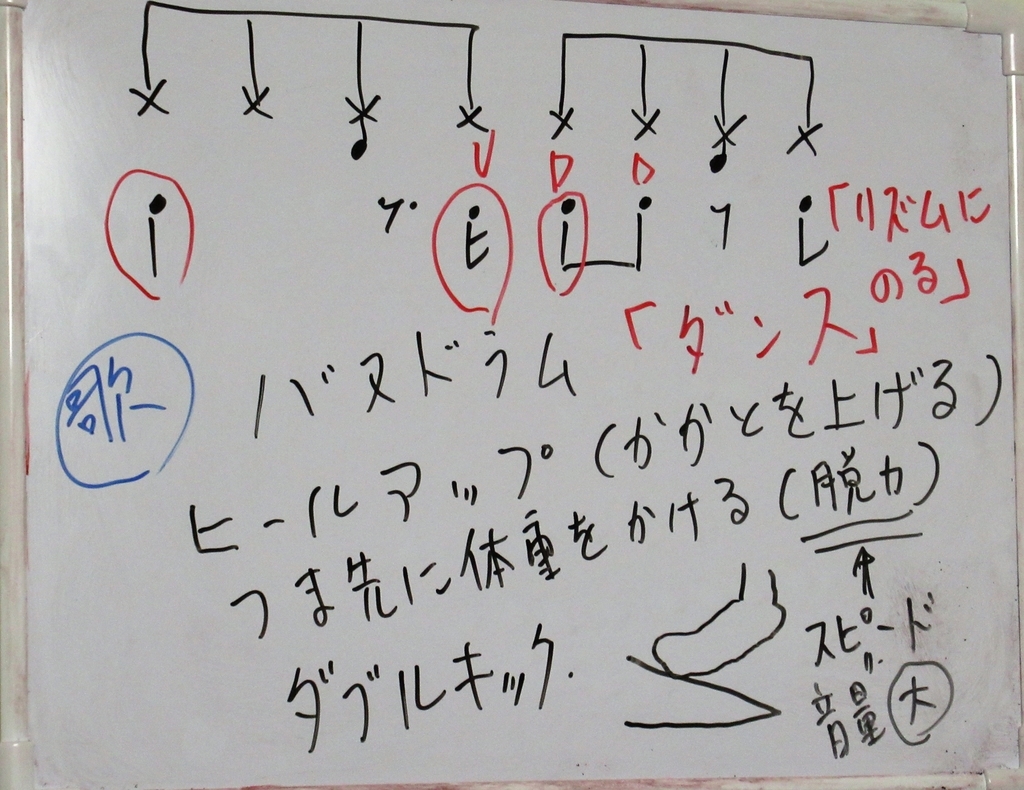 U D D
「リズムに
のる」
「ダンス」
歌
バスドラム
ヒールアップ(かかとを上げる)
つま先に体重をかける(脱力)
ダブルキック.
スピード
音量 大